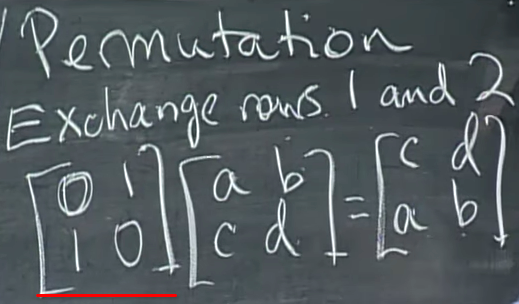 Permutation
Exchange rows 1 and 2
[0 1] [a b] = [c d]
[1 0] [c d] [a b]